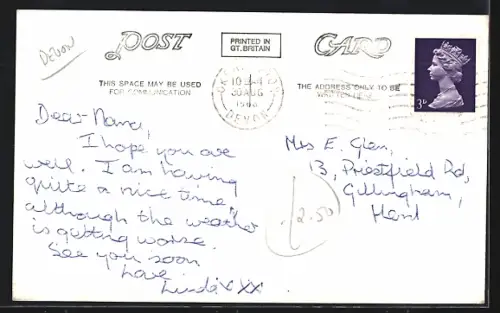 DEVON
POST
PRINTED IN
GT. BRITAIN
CARD
THIS SPACE MAY BE USED
FOR COMMUNICATION
THE ADDRESS ONLY TO BE
30 AUG
DEVON
3D
Dear Nana,
I hope you are
well. I am having
quite a nice time,
although the weather
is getting worse.
See you soon
Love
Linda XXX
Mrs E. Glen,
13, Priestfield Rd,
Gillingham,
Kent
2.50